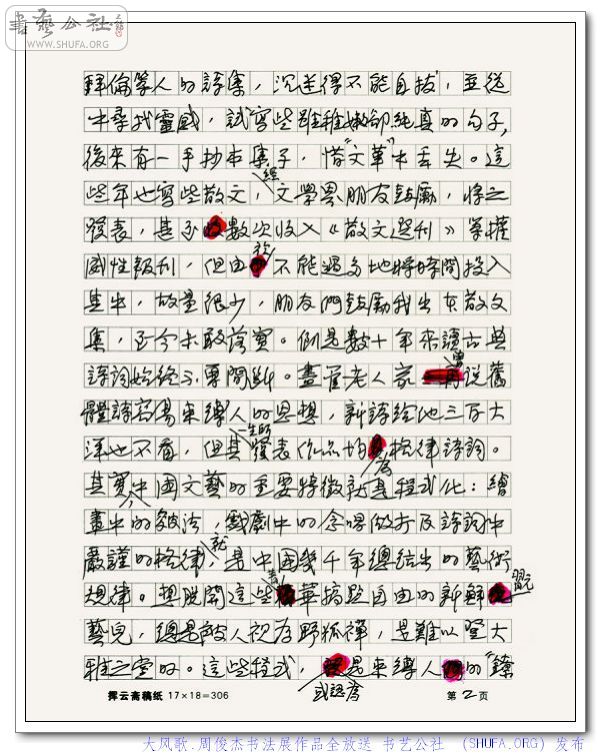 書藝公社
WWW.SHUFA.ORG
拜倫等人的詩集，沉迷得不能自拔，並從
中尋找靈感，試寫些雖稚嫩卻純真的句子，
後來有一手抄本集子，惜"文革"中丢失。這
些年也寫些散文，經文學界朋友鼓勵，將之
發表，甚至數次收入《散文選刊》等權
威性報刊，但由於不能過多地將時間投入
其中，故量很少，朋友們鼓勵我出本散文
集，至今未敢落實。倒是數十年來讀古典
詩詞始終不曾間斷。儘管老人家曾說舊
體詩容易束縛人的思想，新詩給他三百大
洋也不看，但其一生的發表作品均為格律詩詞。
其實中國文藝的重要特徵就是程式化：繪
畫中的皴法，戲劇中的念唱做打及詩詞中
嚴謹的格律，就是中國幾千年總結出的藝術
規律。想脫開這些菁華搞點自由的新鮮玩
藝兒，總是被人視為野狐禪，是難以登大
雅之堂的。這些程式，或認為是束縛人的"鐐
揮云斋稿纸 17×18=306
第 2 页
大风歌.周俊杰书法展作品全放送 书艺公社 (SHUFA.ORG) 发布